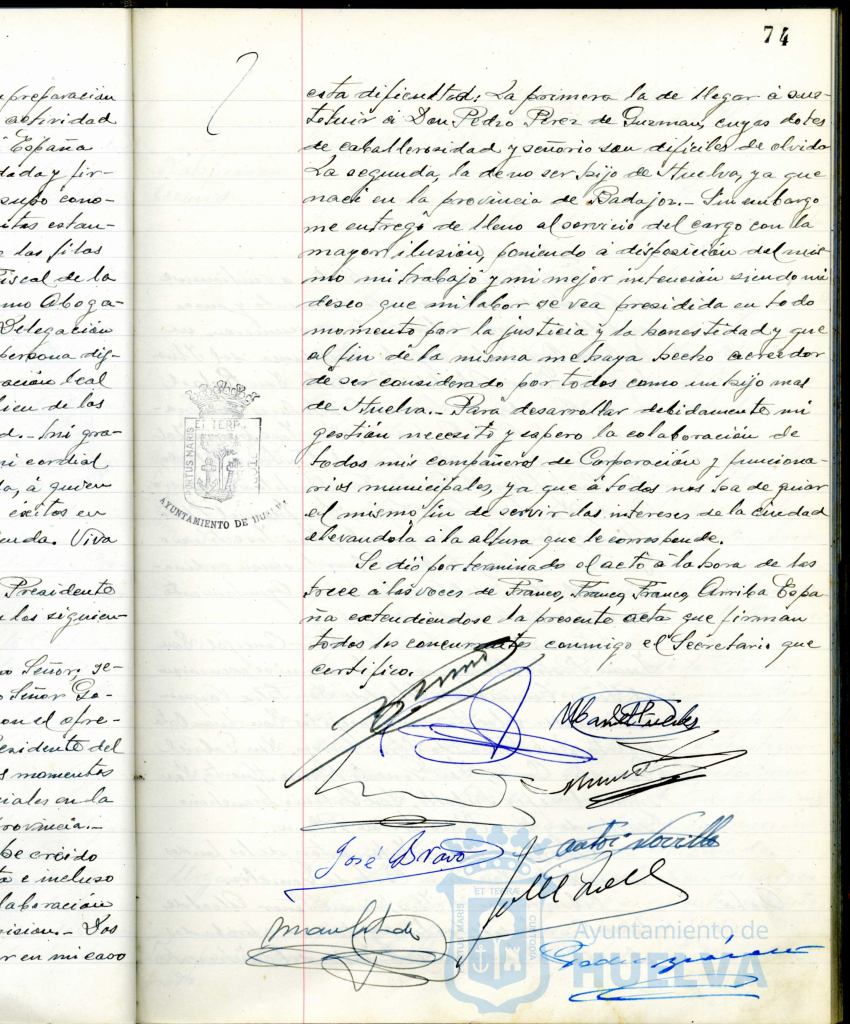 74
preparación
actividad
España
dada y fir-
supo cono-
estan-
las filas
Fiscal de la
como Aboga-
Delegación
persona dig-
ración leal
bien de los
d.- Mi gra-
mi cordial
, á quien
éxitos en
Viva
Presidente
los siguien-
Señor, se-
Señor Go-
con el ofre-
Presidente del
momentos
ciales en la
provincia.-
he creido
e incluso
laboración
vision.- Dos
en mi caso
esta dificultad: La primera la de llegar á sus-
tituir á Don Pedro Perez de Guzman, cuyas dotes
de caballerosidad y señorio son dificiles de olvida
La segunda, la de no ser hijo de Huelva, ya que
naci en la provincia de Badajoz.- Sin embargo
me entregó de lleno al servicio del cargo con la
mayor ilusión, poniendo á disposición del mis-
mo mi trabajo y mi mejor intención siendo mi
deseo que mi labor se vea presidida en todo
momento por la justicia y la honestidad y que
al fin de la misma me haya hecho acreedor
de ser considerado por todos como un hijo mas
de Huelva.- Para desarrollar debidamente mi
gestión necesito y espero la colaboración de
todos mis compañeros de Corporación y funciona-
rios municipales, ya que á todos nos ha de guiar
el mismo fin de servir los intereses de la ciudad
elevandola á la altura que le corresponde.
Se dió por terminado el acto á la hora de las
trece á las voces de Franco, Franco, Franco, Arriba Espa-
ña extendiendose la presente acta que firman
todos los concurrentes conmigo el Secretario que
certifico.
ET TERR
PORTUS MARIS
AYUNTAMIENTO DE HUELVA
José Bravo
ET TERRA
PORTUS MARIS
CUSTODIA
Ayuntamiento de
HUELVA